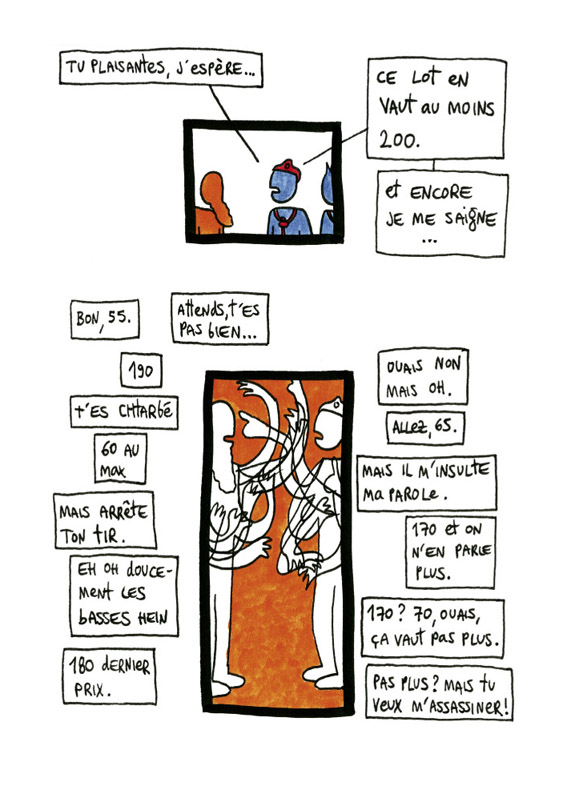 TU PLAISANTES, J'ESPÈRE...
CE LOT EN
VAUT AU MOINS
200.
ET ENCORE
JE ME SAIGNE
...
BON, 55.
ATTENDS, T'ES
PAS BIEN...
190
T'ES CHTARBÉ
60 AU
MAX
MAIS ARRÊTE
TON TIR.
EH OH DOUCE-
MENT LES
BASSES HEIN
180 DERNIER
PRIX.
OUAIS NON
MAIS OH.
ALLEZ, 65.
MAIS IL M'INSULTE
MA PAROLE.
170 ET ON
N'EN PARLE
PLUS.
170 ? 70, OUAIS,
ÇA VAUT PAS PLUS.
PAS PLUS ? MAIS TU
VEUX M'ASSASSINER !